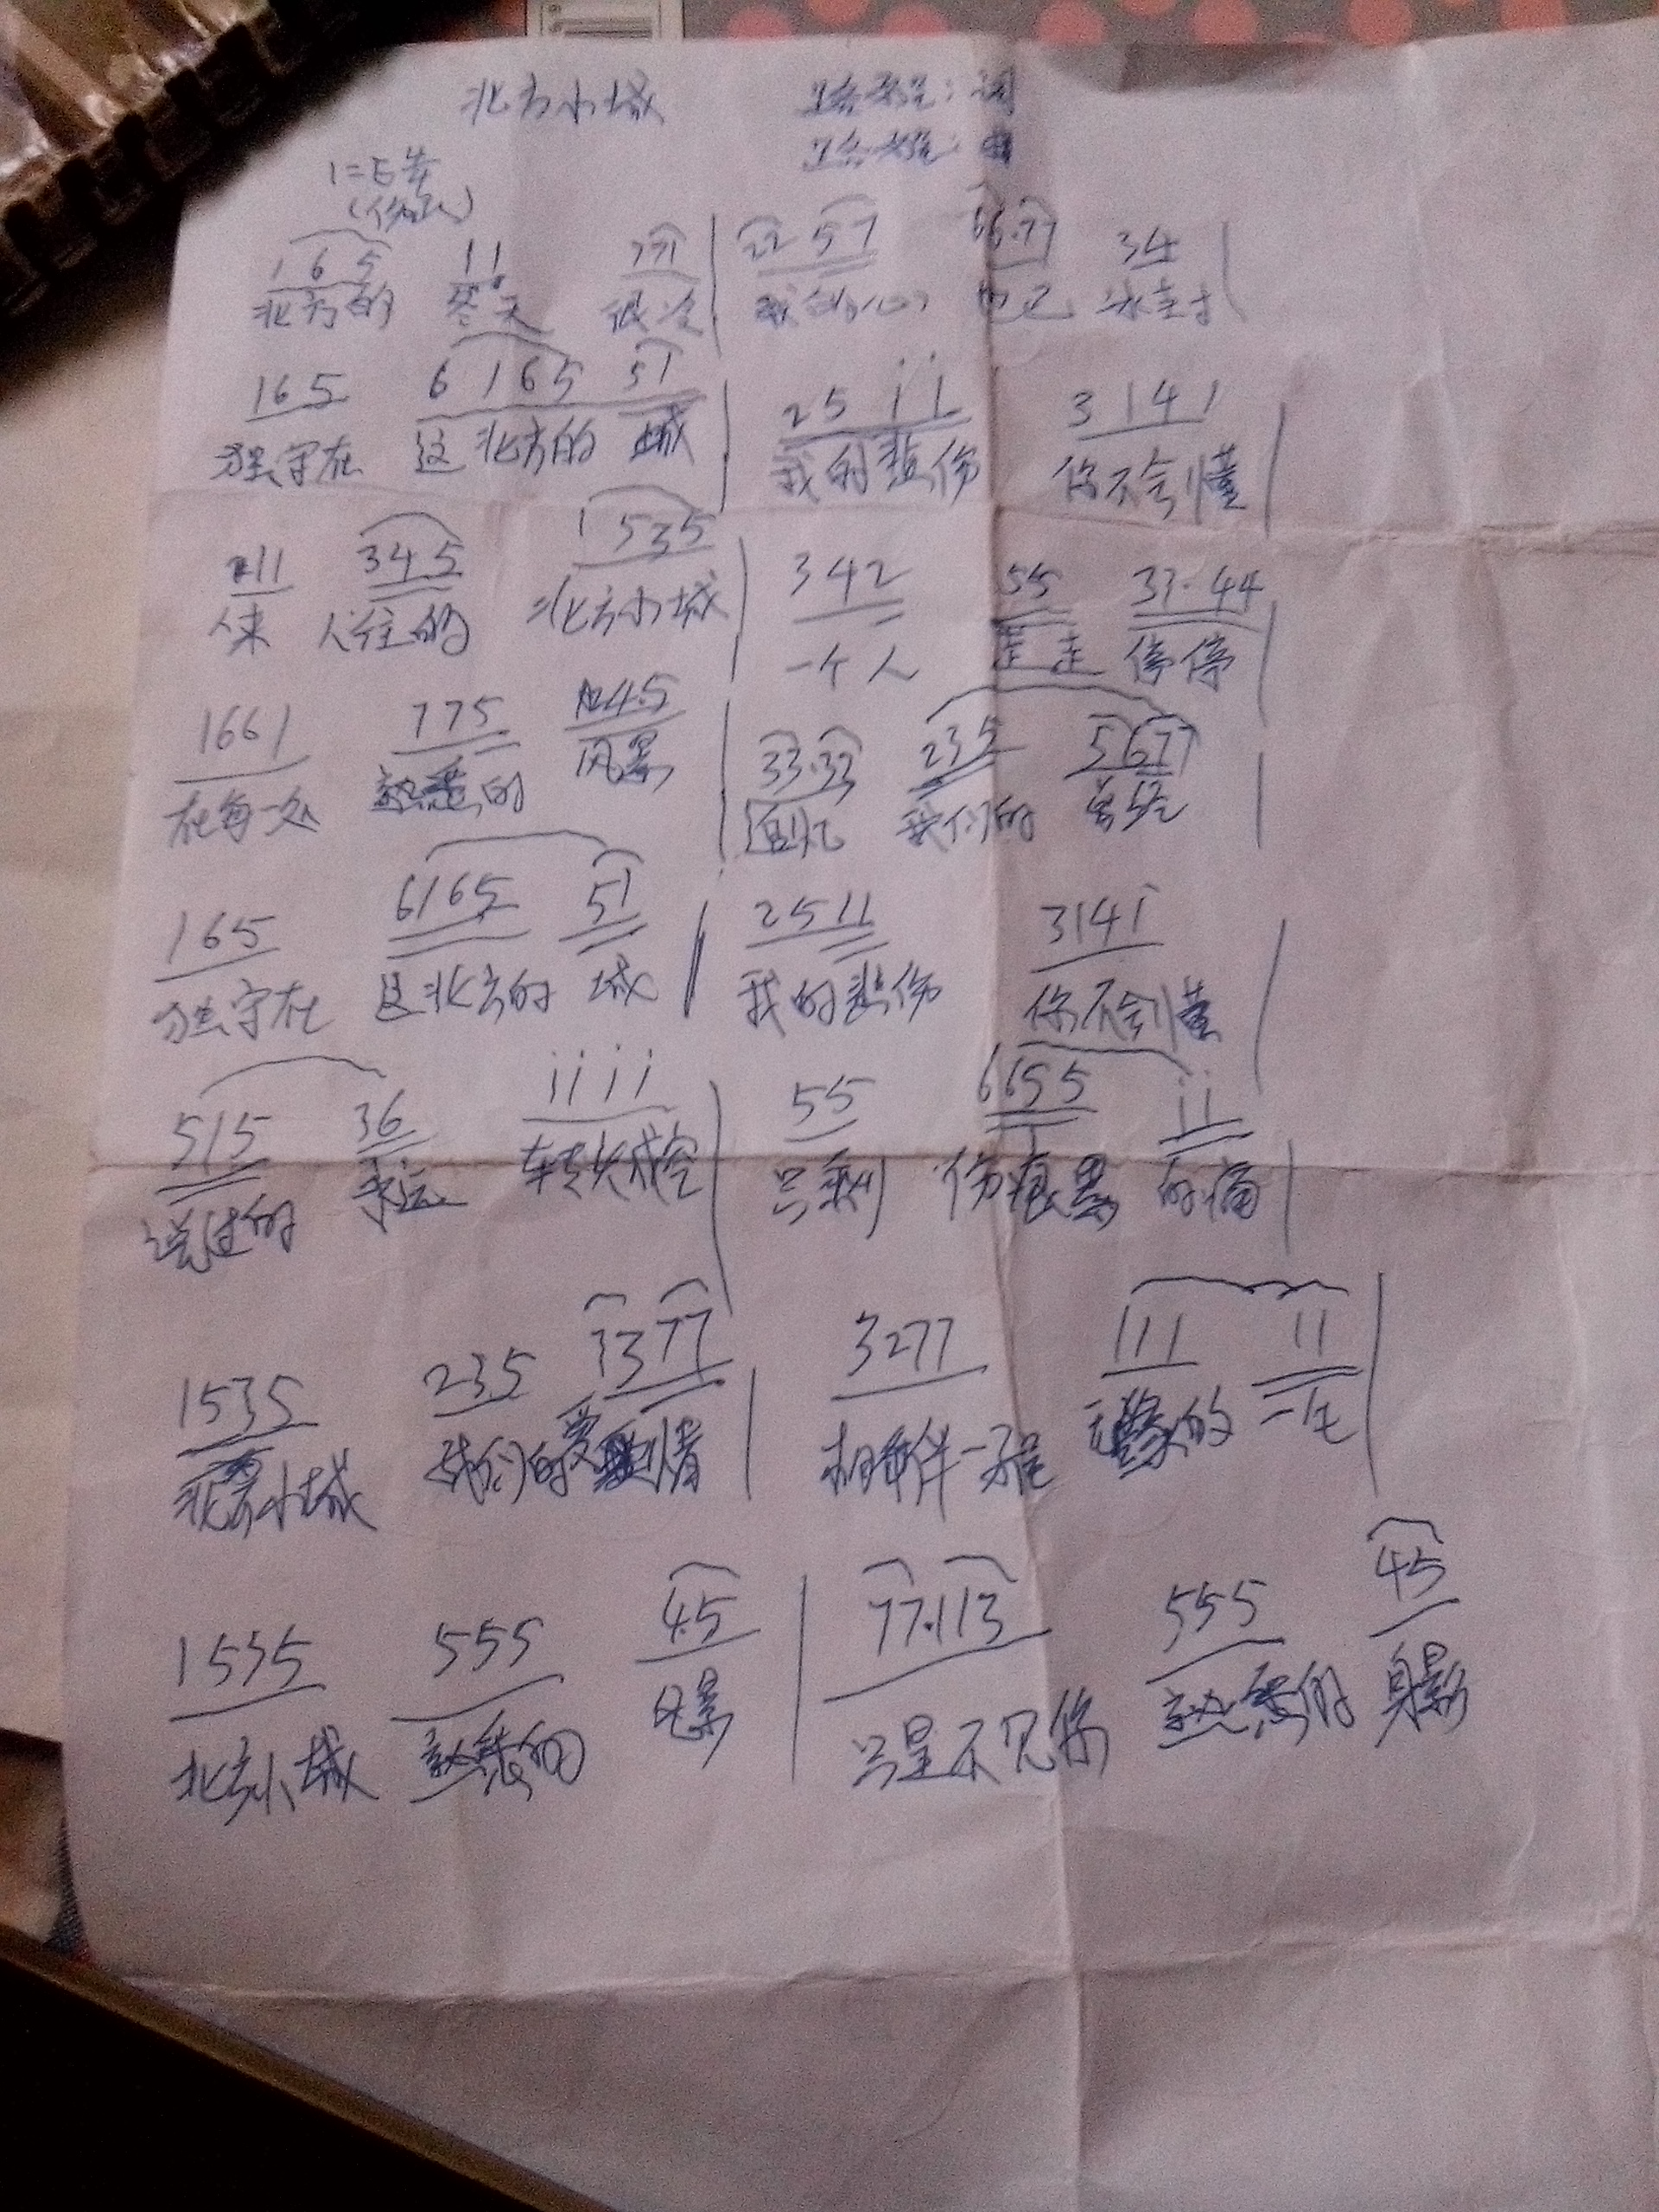 北方小城 : 词
: 曲
1=E
(伤感)
165 11 | 2257 66.77 34 |
北方的 冬天 很冷 我的心 也已 冰封
165 6165 51 | 25 11 3141 |
独守在 这北方的 城 我的悲伤 你不会懂
11 345 1535 | 342 55 33.44 |
人来 人往的 北方小城 一个人 走走 停停
1661 775 | 33.33 235 5677 |
在每一处 熟悉的 风景 回忆 我们的 曾经
165 6165 51 | 2511 3141 |
独守在 这北方的 城 我的悲伤 你不会懂
515 36 1111 | 55 6655 11 |
说过的 永远 转头成空 只剩 伤痕累累 的痛
1535 235 3377 | 3277 111 11 |
北方小城 我们的爱情 相伴一 无缘的 一生
1535 555 45 | 77.113 555 45
北方小城 熟悉的 风景 只是不见你 熟悉的 身影